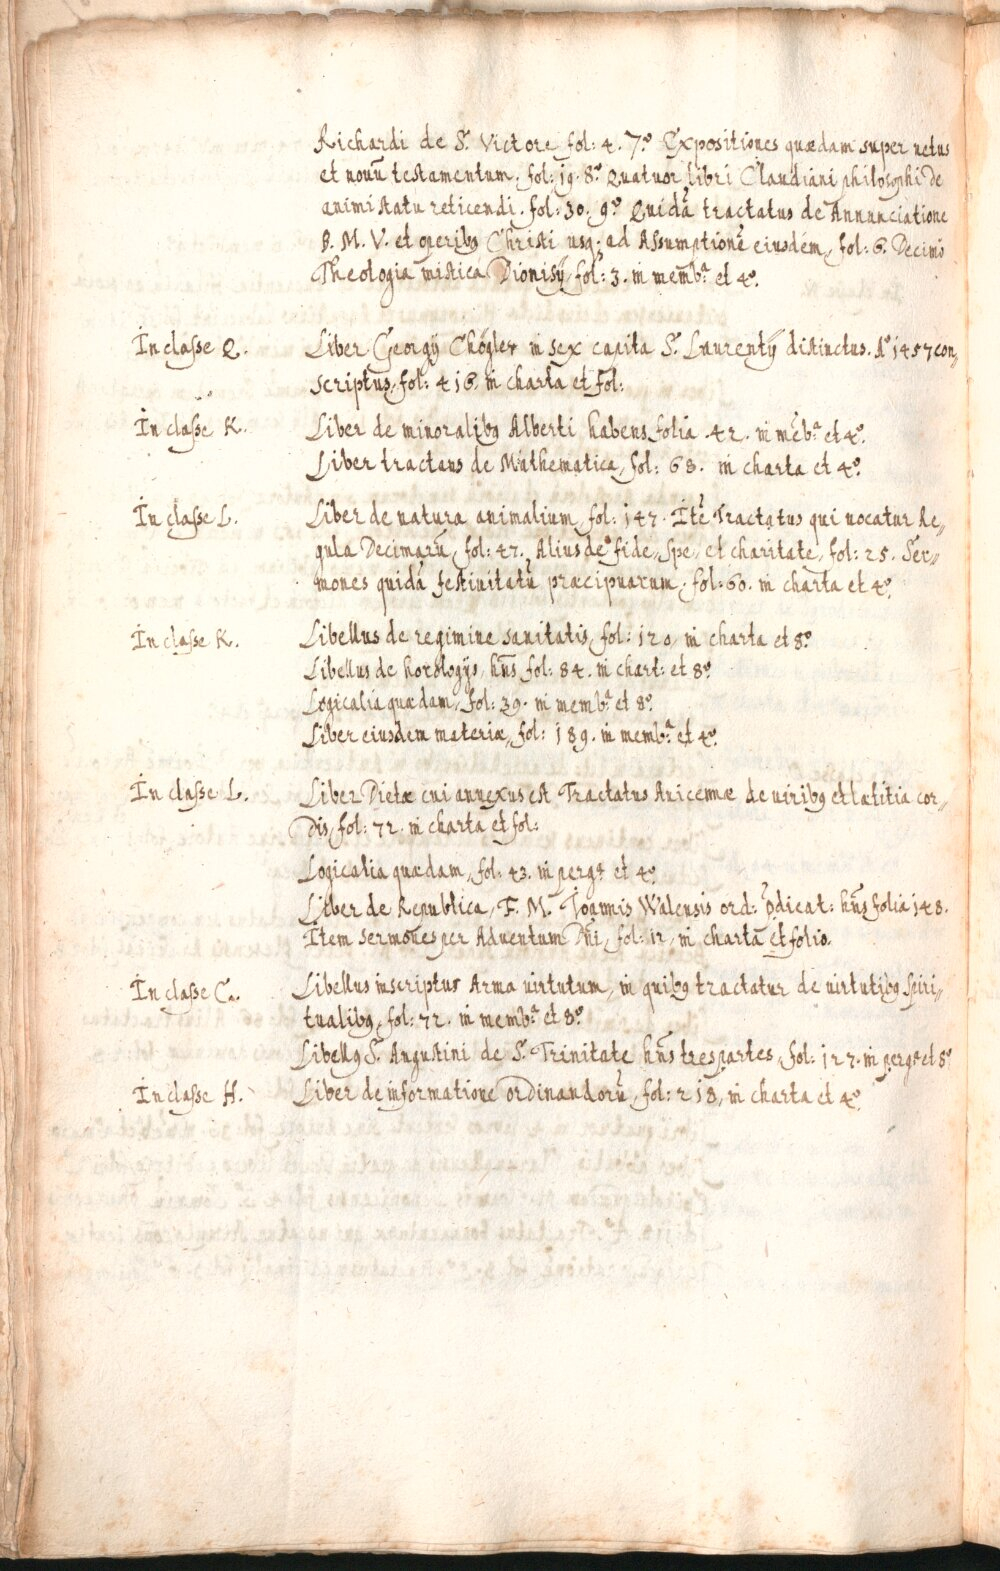 Richardi de S. Victore, fol: 4. 7.º Expositiones quædam super uetus
et nouũ testamentum, fol: 19. 8.º Quatuor libri Claudiani philosophi de
animi statu reticendi. fol: 30. 9.º Quidã tractatus de Annunciatione
B. M. V. et operibꝰ Christi usq; ad Assumptionẽ eiusdem, fol: 6. Decimo
Theologia mistica Dionisÿ, fol: 3. in memb.ª et 4.º
In classe Q. Liber Georgÿ in sex capita S. Laurentÿ distinctus. Aº 1457 con„
scriptus, fol: 416. in charta et fol:
In classe K. Liber de mineralibꝰ Alberti habens folia 42. in mẽb.ª et 4.º
Liber tractans de Mathematica, fol: 68. in charta et 4.º
In classe L. Liber de natura animalium, fol: 147. Itẽ Tractatus qui uocatur Re„
gula Decimarũ, fol: 47. Alius de fide, spe, et charitate, fol: 25. Ser„
mones quidã festiuitatũ præcipuarum, fol: 60. in charta et 4.º
In classe K. Libellus de regimine sanitatis, fol: 120, in charta et 8.º
Libellus de horologÿs, hñs fol: 84. in chart: et 8.º
Logicalia quædam, fol: 39. in memb.ª et 8.º
Liber eiusdem materiæ, fol: 189. in memb.ª et 4.º
In classe L. Liber Dietæ cui annexus est Tractatus Auicennæ de uiribꝰ et lætitia cor„
dis, fol: 72. in charta et fol:
Logicalia quædam, fol: 43. in perg.º et 4.º
Liber de Republica, F. M. Joannis Walensis ord: p̃dicat: hñs folia 148.
Item sermones per Aduentum Dñi, fol: 12, in charta et folio.
In classe C. Libellus inscriptus Arma uirtutum, in quibꝰ tractatur de uirtutibꝰ spiri„
tualibꝰ, fol: 72. in memb.ª et 8.º
Libellꝰ S. Augustini de S. Trinitate hñs tres partes, fol: 127. in perg.º et 8.º
In classe H. Liber de informatione ordinandorũ, fol: 218, in charta et 4.º